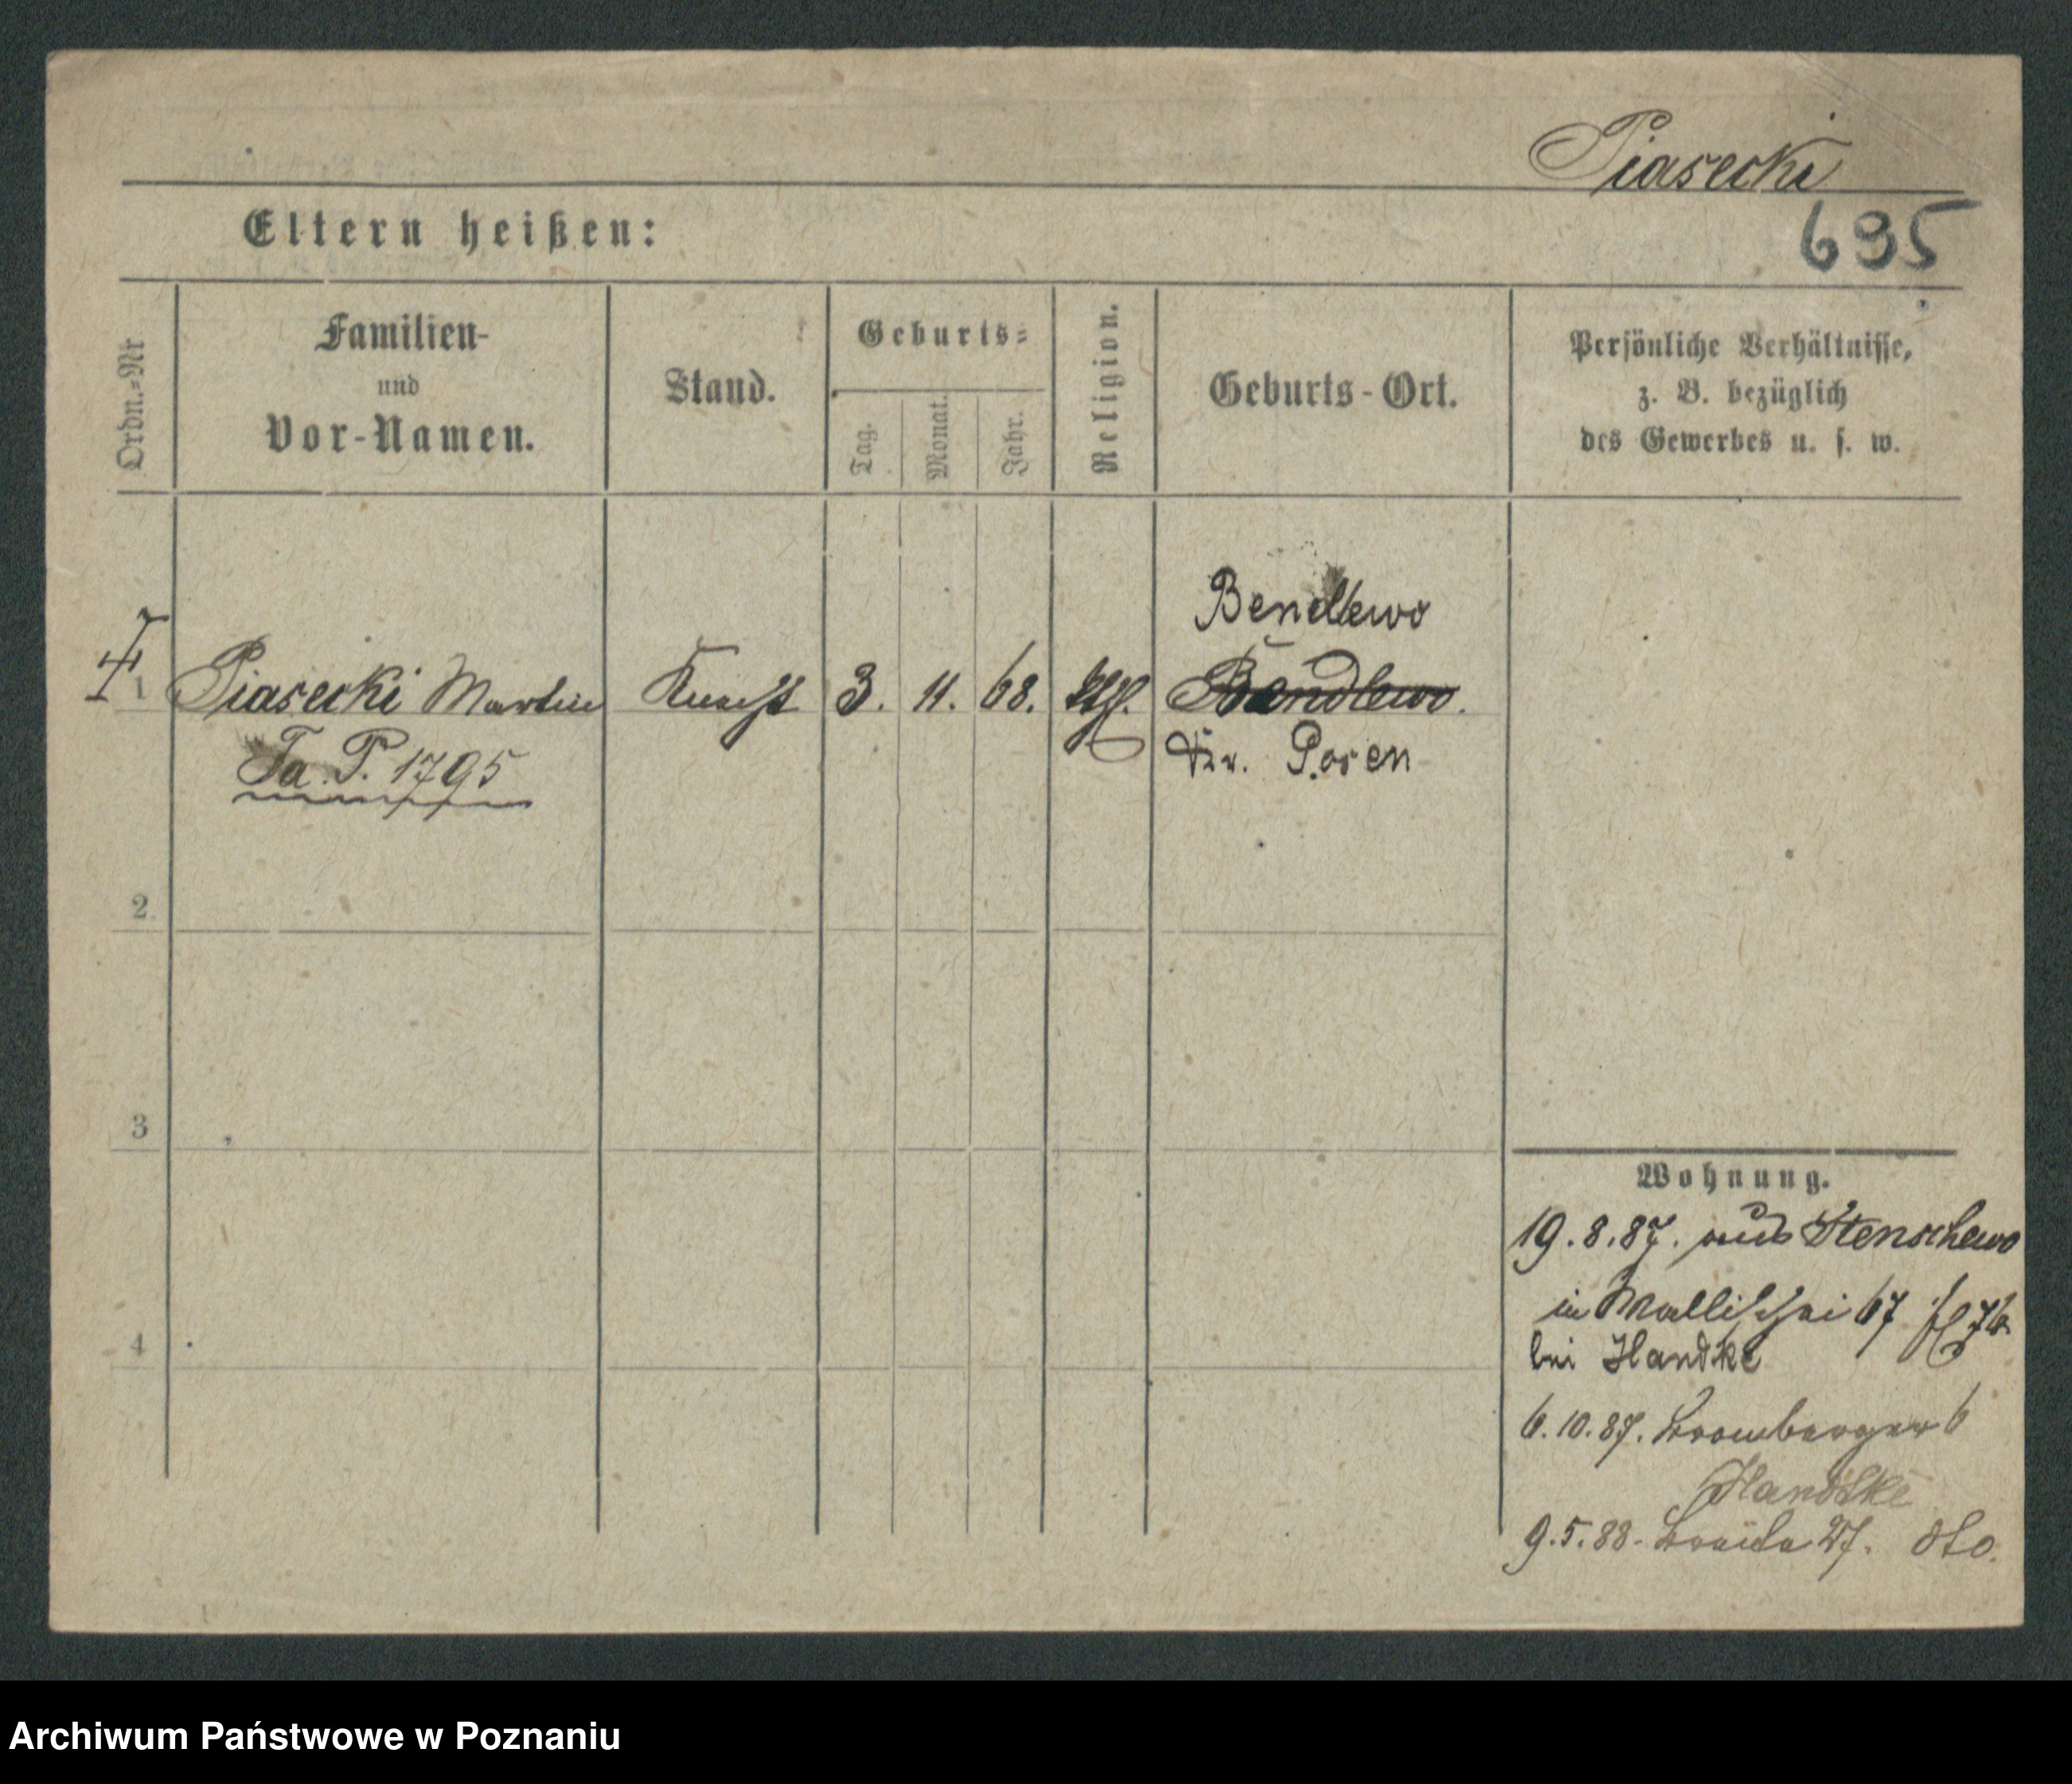 Piasecki
695
Eltern heißen:
Ordn.-Nr
Familien-
und
Vor-Namen.
Stand.
Geburts-
Tag.
Monat.
Jahr.
Religion.
Geburts-Ort.
Persönliche Verhältnisse,
z. B. bezüglich
des Gewerbes u. s. w.
Bendlewo
1 Piasecki Martin Knecht 3. 11. 68. kth. Bendlewo.
Ta. P. 1795
Kr. Posen
2
3
4
Wohnung.
19.8.87. aus Stenschewo
in Wallischei 67
bei Handke
6.10.87. Bromberger 6
Handtke
9.5.88. Breite 27. dto.
Archiwum Państwowe w Poznaniu